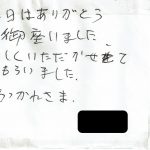 日はありがとう
御座いました
しくいただかせて
もらいました。
つかれさま。